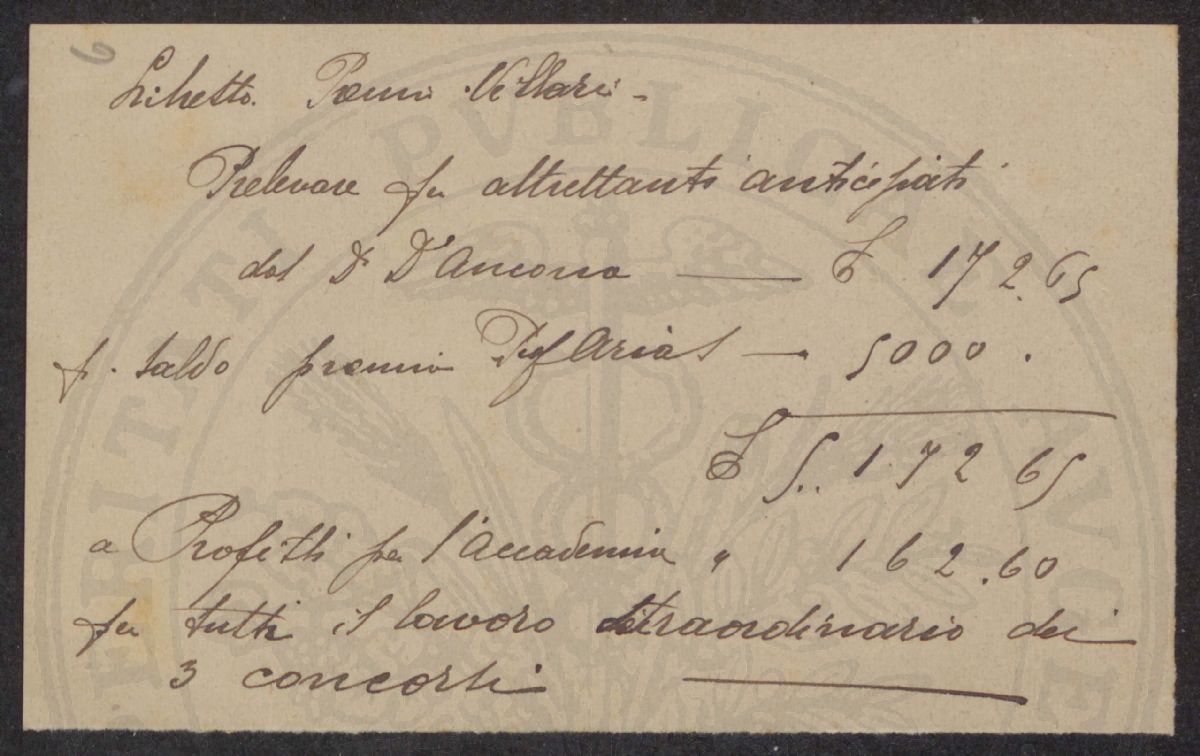 6
Libretto. Premi Villari -
Prelevare per altrettanti anticipati
dal Dr D'Ancona — £ 172.65
p. saldo premio Prof Arias — 5000.
£ 5.172 65
a Profetti per l'Accademia " 162.60
per tutti il lavoro straordinario dei
3 concorsi
PVBLICAE